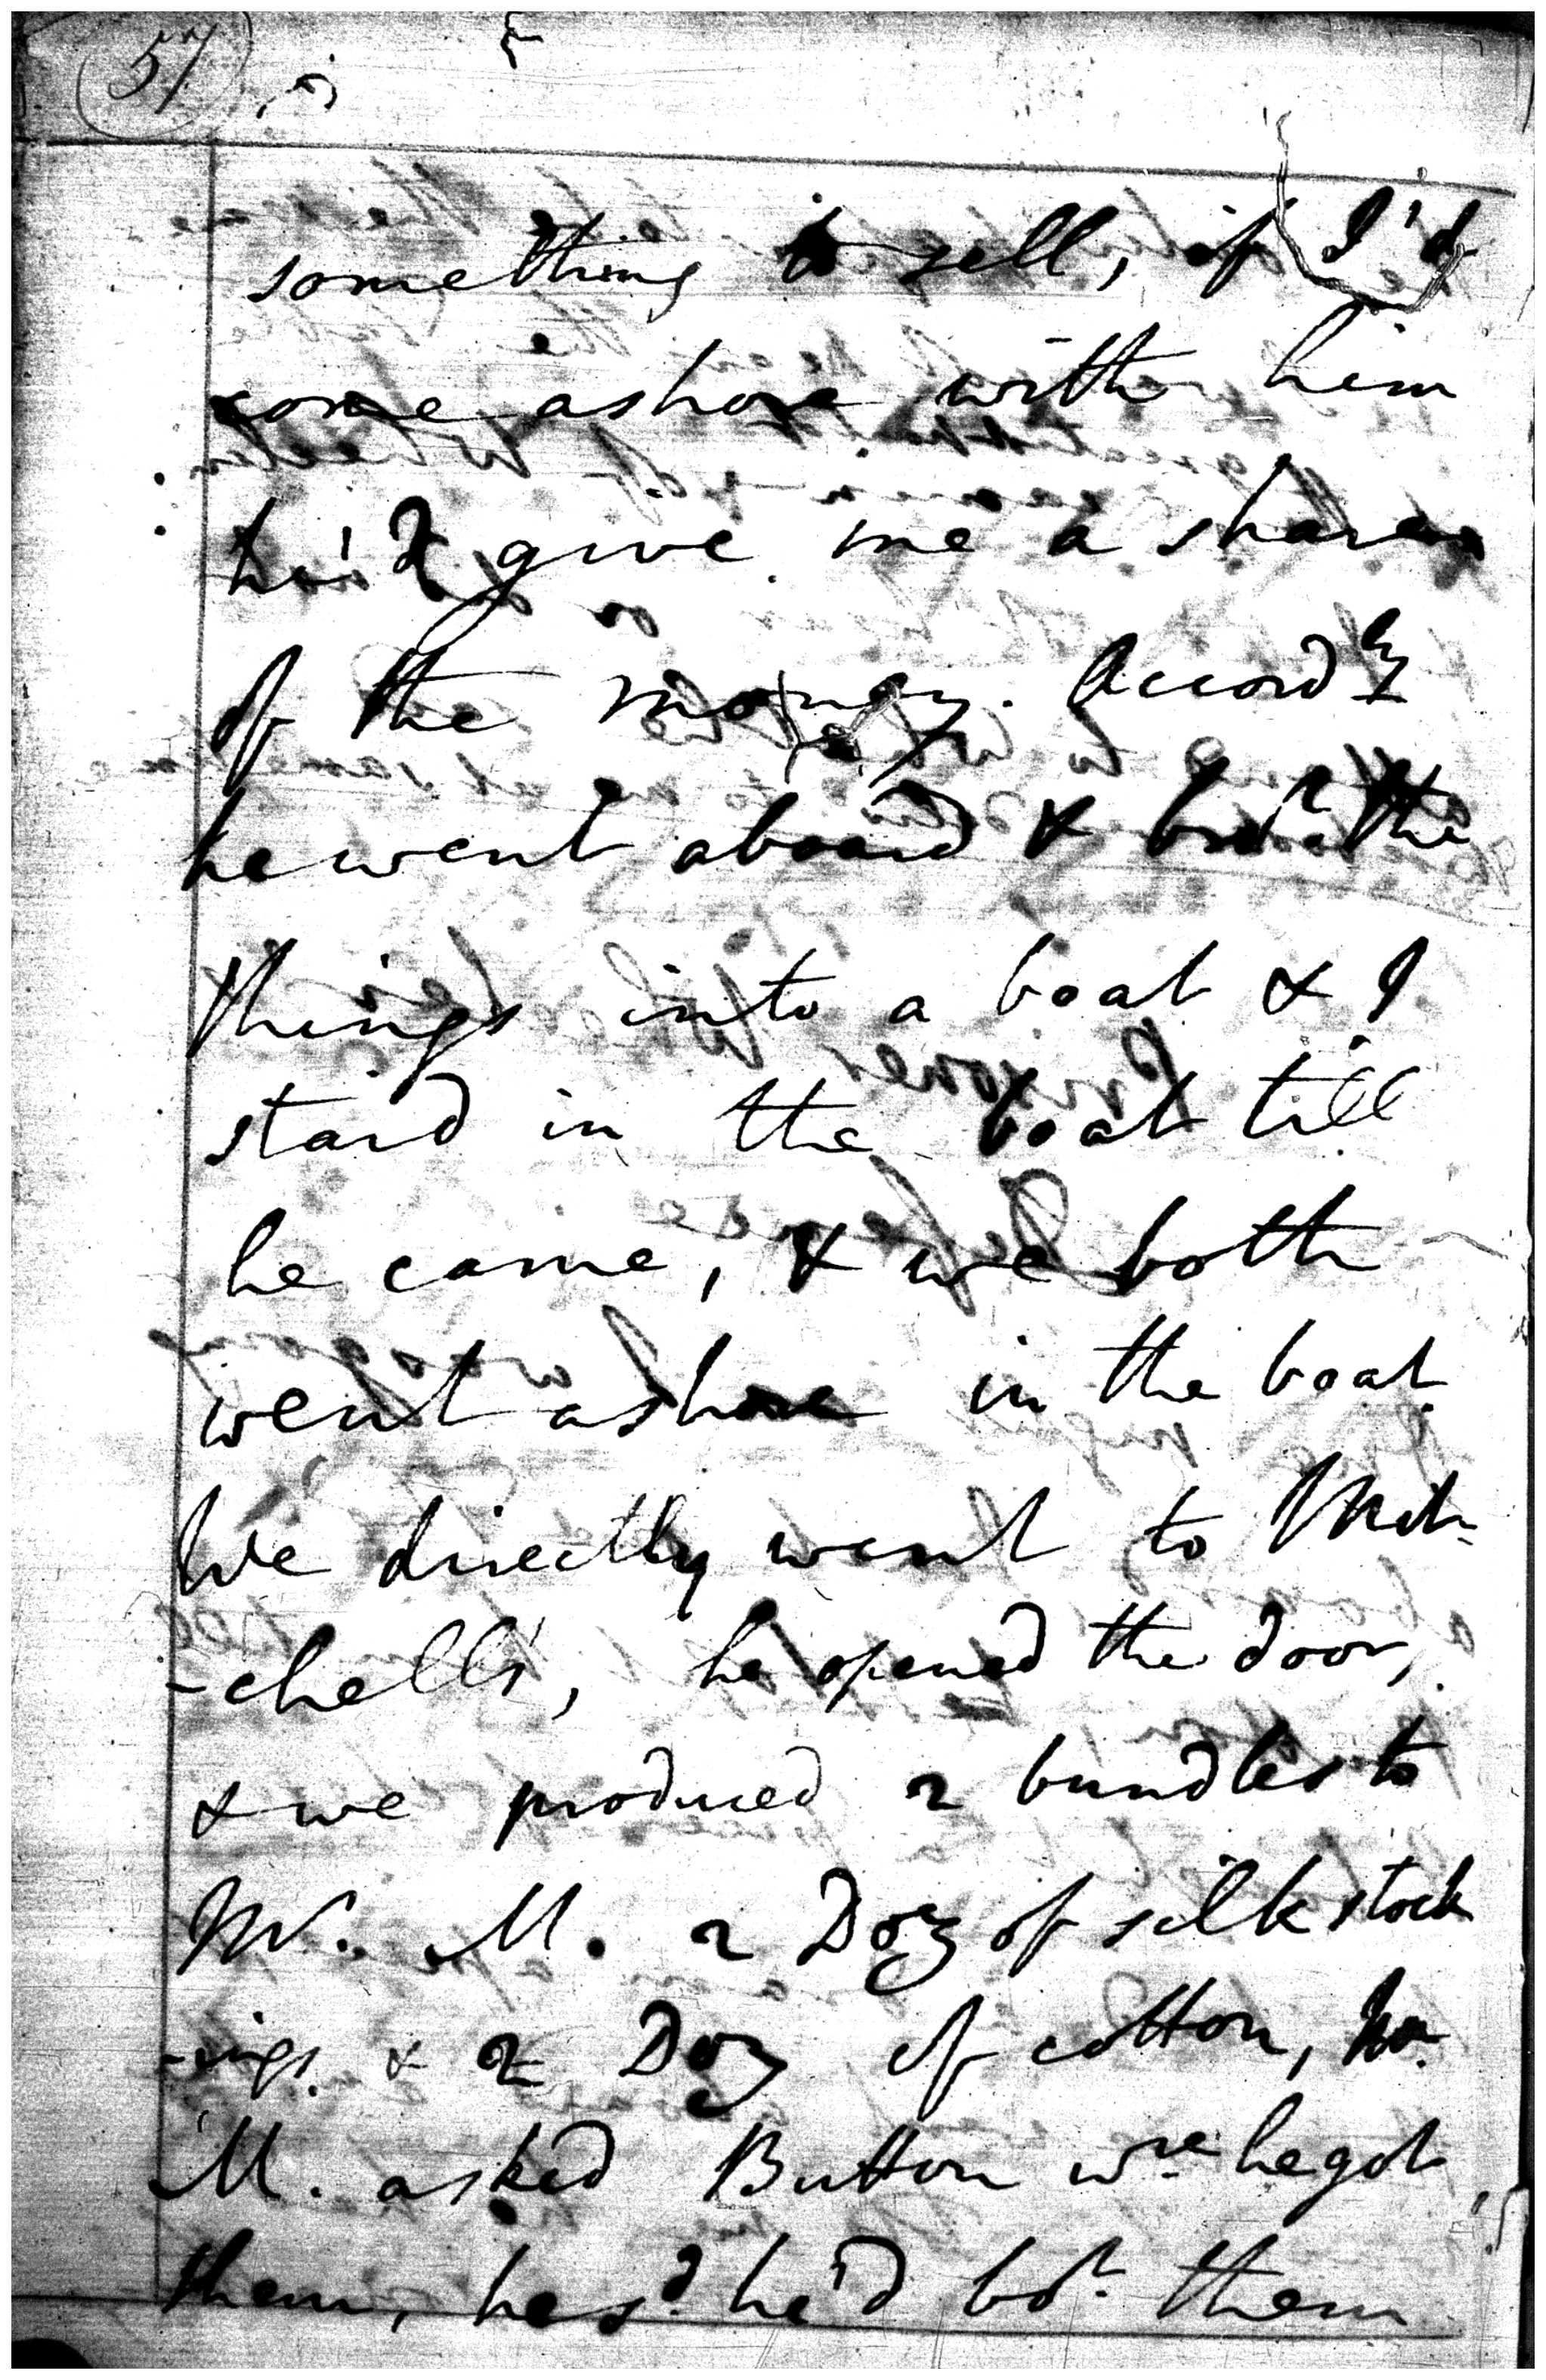 57
something to sell, if I'd
come ashore with him
he'd give me a share
of the money. Accordly
he went aboard & brot the
things into a boat & I
staid in the boat till
he came, & we both
went ashore in the boat
We directly went to Mit-
-chells', he opened the door,
& we produced 2 bundles to
Mr. M. 2 Doz of silk stock
-ings. & 2 Doz of cotton, Mr
M. asked Button wre he got
them, he sd. he'd bot. them